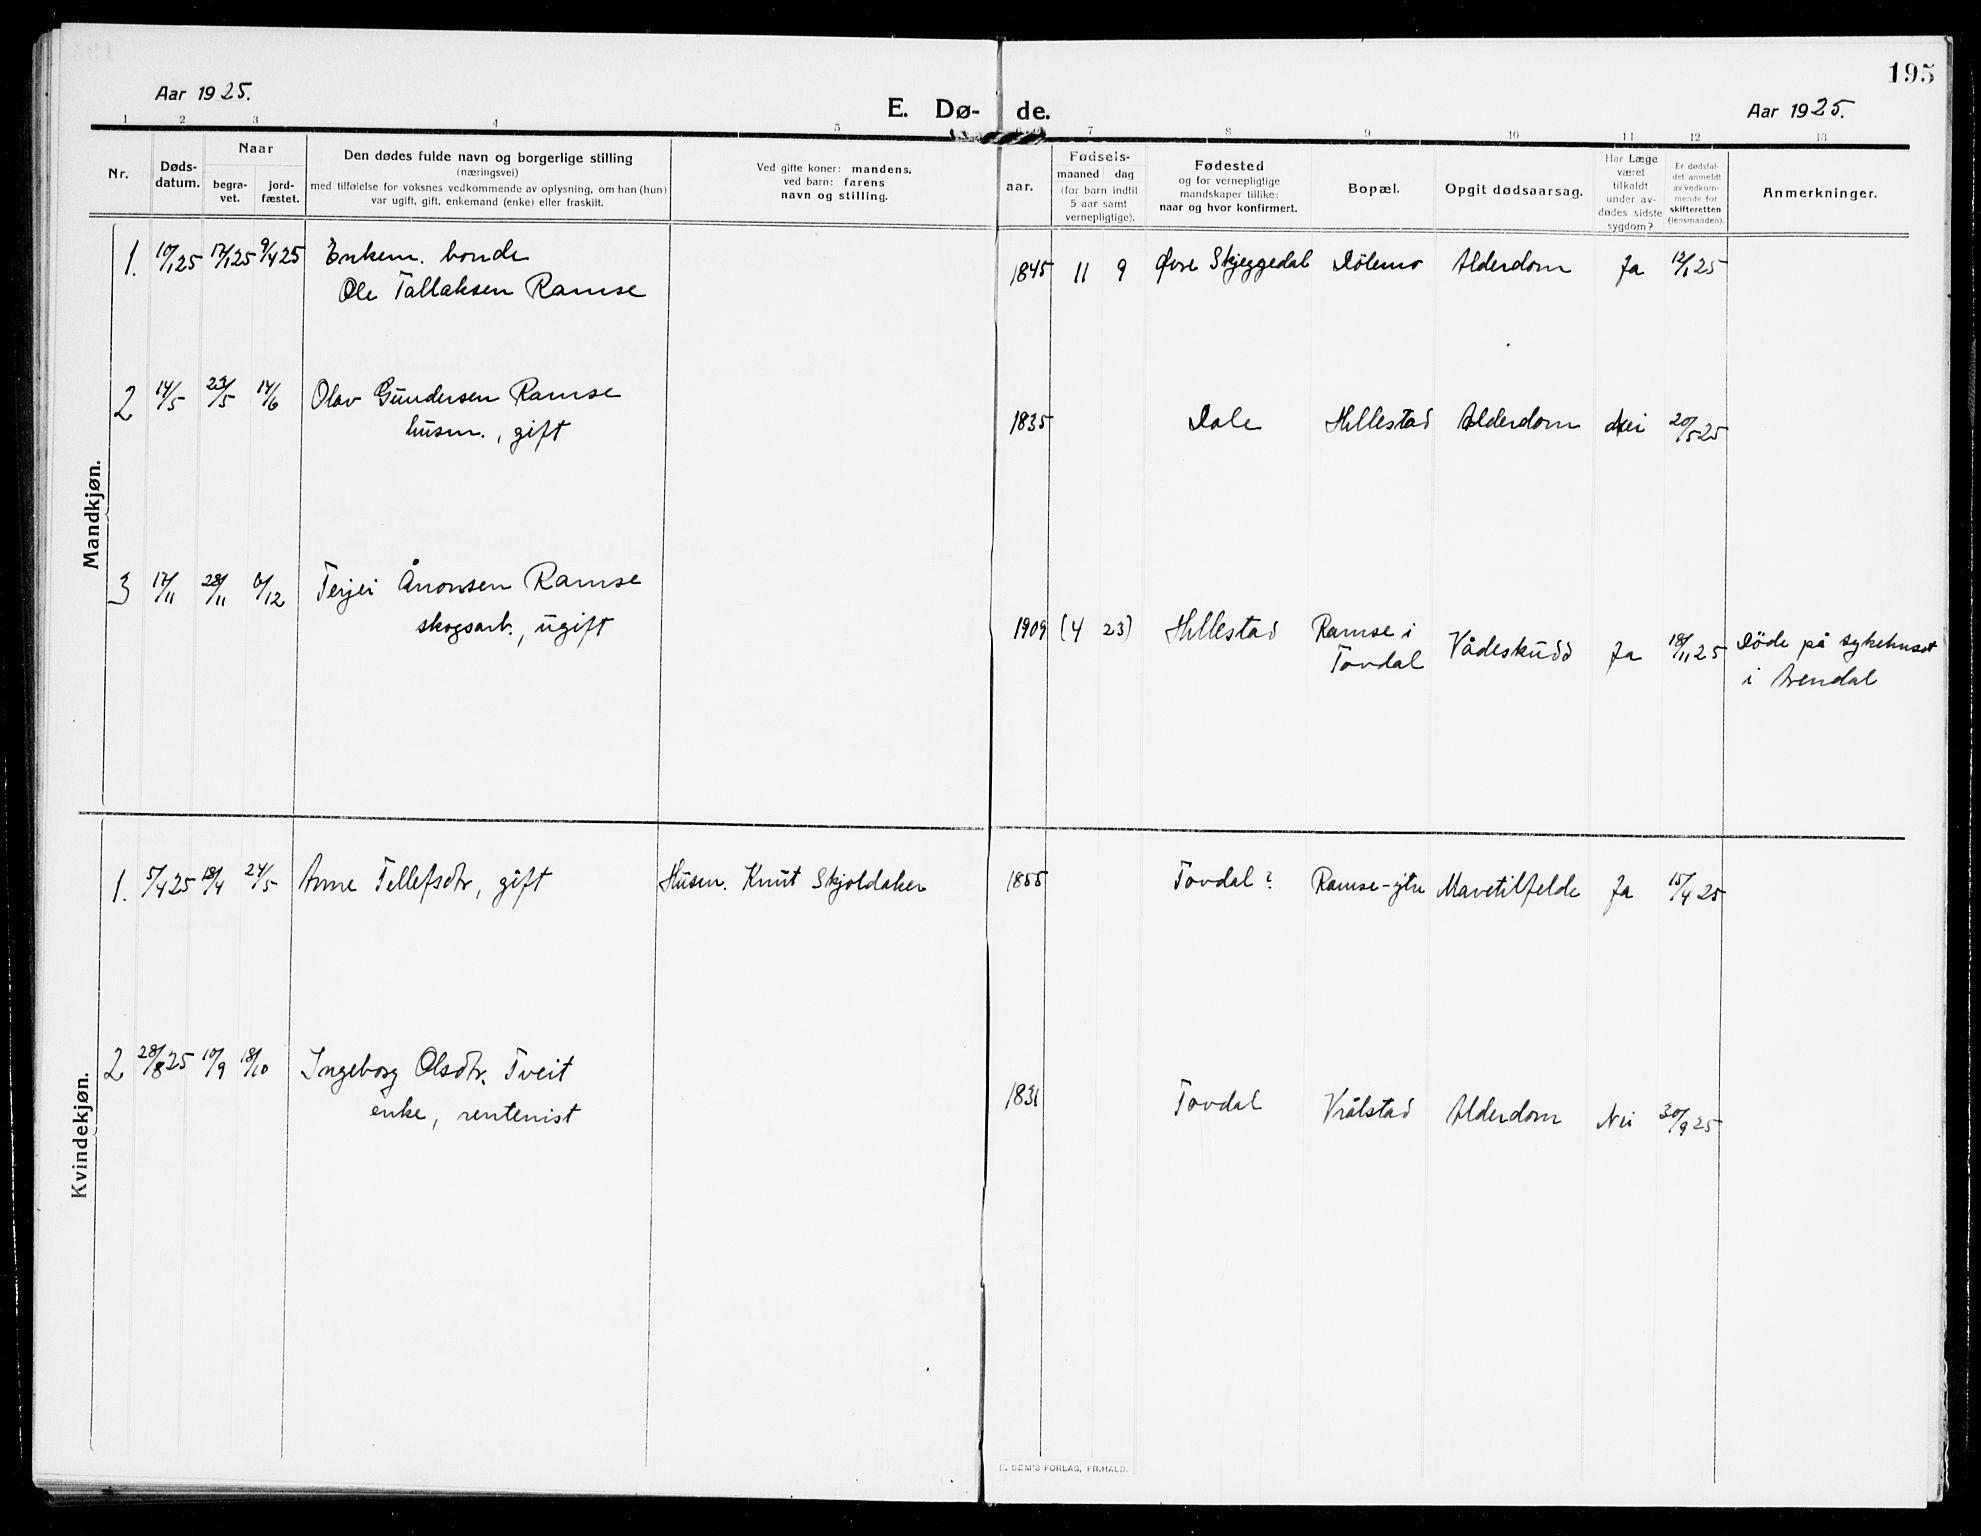 195
Aar 1925.
E. Dø- de.
Aar 1925.
1 2 3 4 5 7 8 9 10 11 12 13
Nr.
Døds-
datum.
Naar
begra-
vet.
jord-
fæstet.
Den dødes fulde navn og borgerlige stilling
(næringsvei)
med tilføielse for voksnes vedkommende av oplysning, om han (hun)
var ugift, gift, enkemand (enke) eller fraskilt.
Ved gifte koner: mandens,
ved barn: farens
navn og stilling.
aar.
Fødsels-
maaned dag
(for barn indtil
5 aar samt
vernepligtige).
Fødested
og for vernepligtige
mandskaper tillike:
naar og hvor konfirmert.
Bopæl.
Opgit dødsaarsag.
Har Læge
været
tilkaldt
under av-
dødes sidste
sygdom?
Er dødsfal-
det anmeldt
av vedkom-
mende for
skifteretten
(lensmanden).
Anmerkninger.
Mandkjøn.
1. 10/1 25 17/1 25 9/4 25 Enkem. bonde
Ole Tallaksen Ramse
1845 11 9 Øvre Skjeggedal Dölemo Alderdom Ja 12/1 25
2 14/5 23/5 14/6 Olav Gundersen Ramse
husm., gift
1835 Dale Hillestad Alderdom Nei 20/5 25
3 17/11 28/11 6/12 Terjei Ånonsen Ramse
skogsarb., ugift
1909 (4 23) Hillestad Ramse i
Tovdal
Vådeskudd Ja 18/11 25 Döde på sykehuset
i Arendal
Kvindekjøn.
1. 5/4 25 18/4 24/5 Anne Tellefsdtr, gift Husm. Knut Skjoldaker 1855 Tovdal? Ramse-ytre Mavetilfelde Ja 15/4 25
2 28/8 25 10/9 18/10 Ingeborg Olsdtr. Tveit
enke, rentenist
1831 Tovdal Vrålstad Alderdom Nei 30/9 25
E. SEM'S FORLAG, FR.HALD.